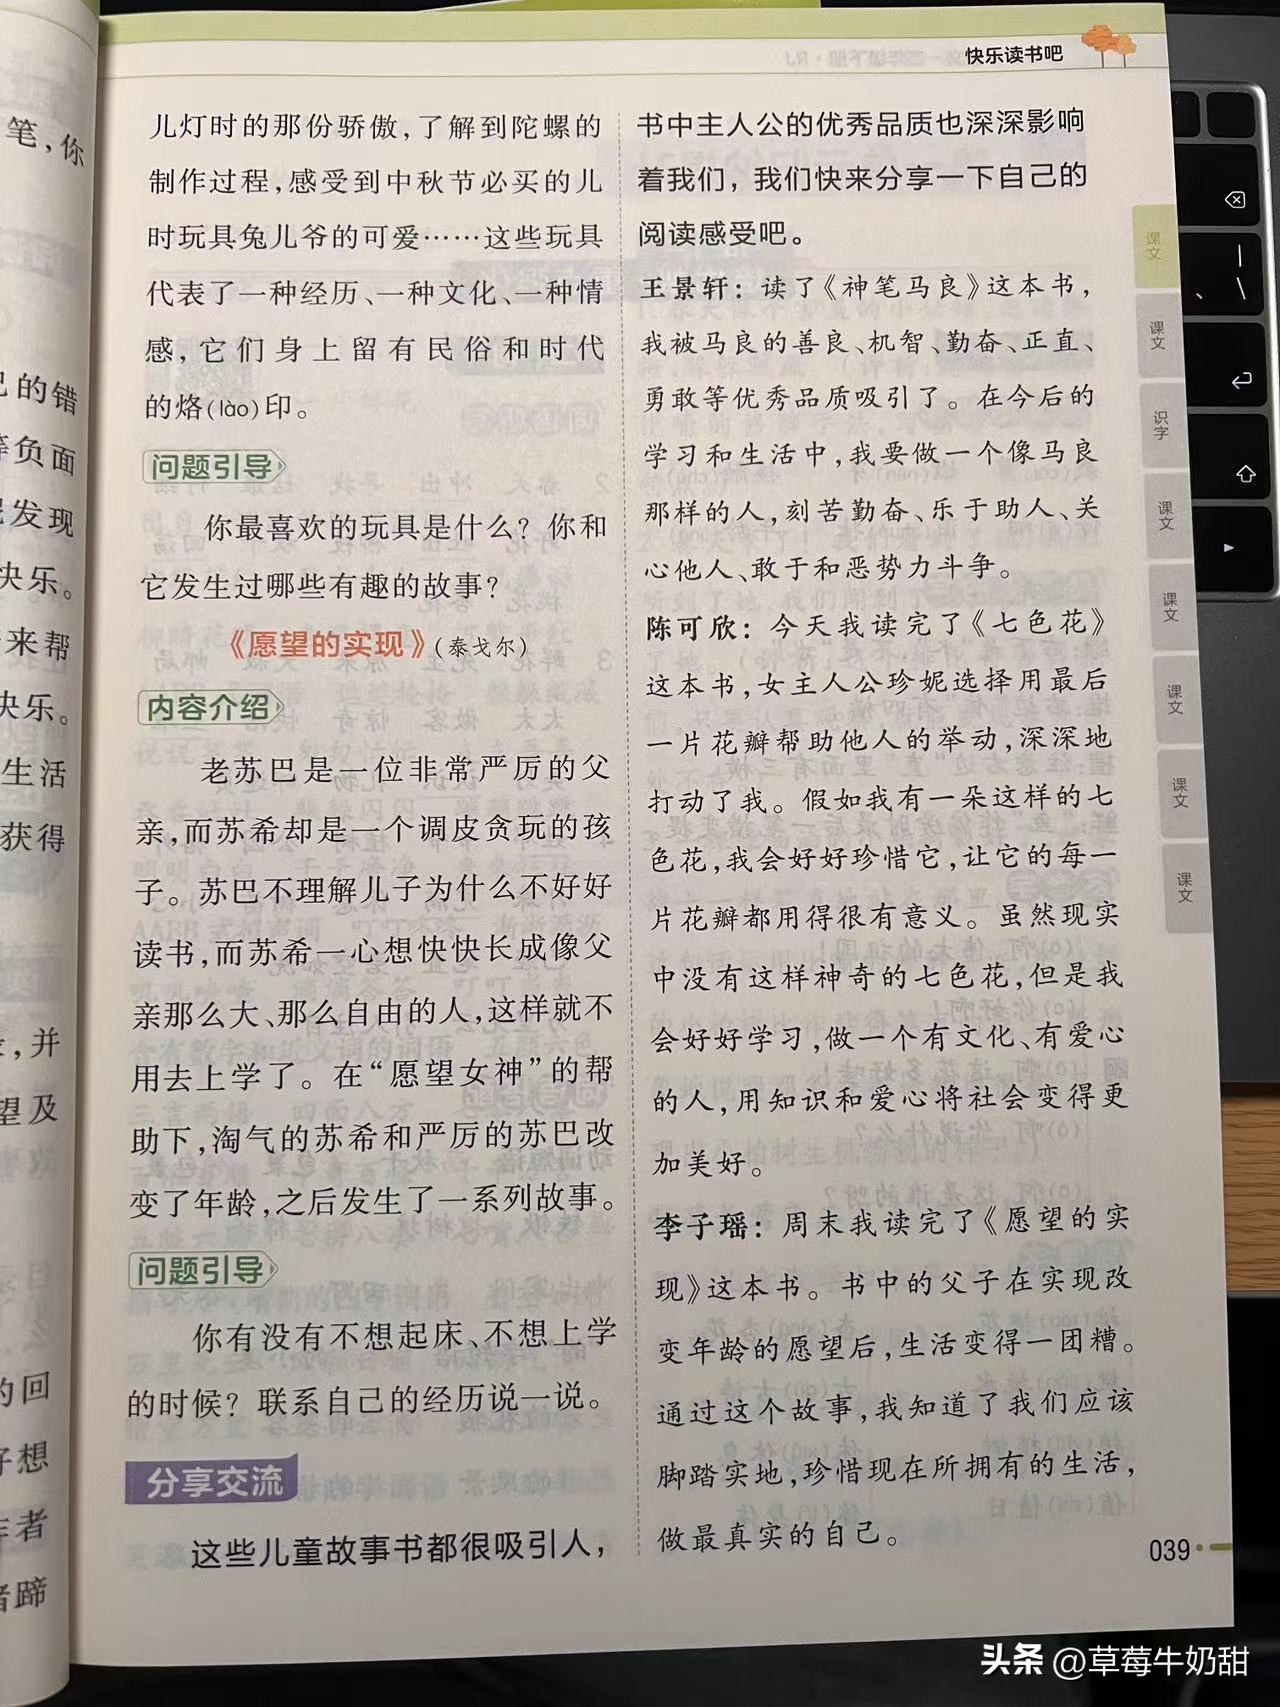 快乐读书吧
儿灯时的那份骄傲，了解到陀螺的
制作过程，感受到中秋节必买的儿
时玩具兔儿爷的可爱……这些玩具
代表了一种经历、一种文化、一种情
感，它们身上留有民俗和时代
的烙(lào)印。
问题引导
你最喜欢的玩具是什么？你和
它发生过哪些有趣的故事？
《愿望的实现》(泰戈尔)
内容介绍
老苏巴是一位非常严厉的父
亲，而苏希却是一个调皮贪玩的孩
子。苏巴不理解儿子为什么不好好
读书，而苏希一心想快快长成像父
亲那么大、那么自由的人，这样就不
用去上学了。在“愿望女神”的帮
助下，淘气的苏希和严厉的苏巴改
变了年龄，之后发生了一系列故事。
问题引导
你有没有不想起床、不想上学
的时候？联系自己的经历说一说。
分享交流
这些儿童故事书都很吸引人，
书中主人公的优秀品质也深深影响
着我们，我们快来分享一下自己的
阅读感受吧。
王景轩：读了《神笔马良》这本书，
我被马良的善良、机智、勤奋、正直、
勇敢等优秀品质吸引了。在今后的
学习和生活中，我要做一个像马良
那样的人，刻苦勤奋、乐于助人、关
心他人、敢于和恶势力斗争。
陈可欣：今天我读完了《七色花》
这本书，女主人公珍妮选择用最后
一片花瓣帮助他人的举动，深深地
打动了我。假如我有一朵这样的七
色花，我会好好珍惜它，让它的每一
片花瓣都用得很有意义。虽然现实
中没有这样神奇的七色花，但是我
会好好学习，做一个有文化、有爱心
的人，用知识和爱心将社会变得更
加美好。
李子瑶：周末我读完了《愿望的实
现》这本书。书中的父子在实现改
变年龄的愿望后，生活变得一团糟。
通过这个故事，我知道了我们应该
脚踏实地，珍惜现在所拥有的生活，
做最真实的自己。
039
课文
课文
识字
课文
课文
课文
课文
课文
笔，你
的错
负面
发现
快乐。
来帮
快乐。
生活
获得
，并
望及
的回
好想
作者
者蹄
头条 @草莓牛奶甜